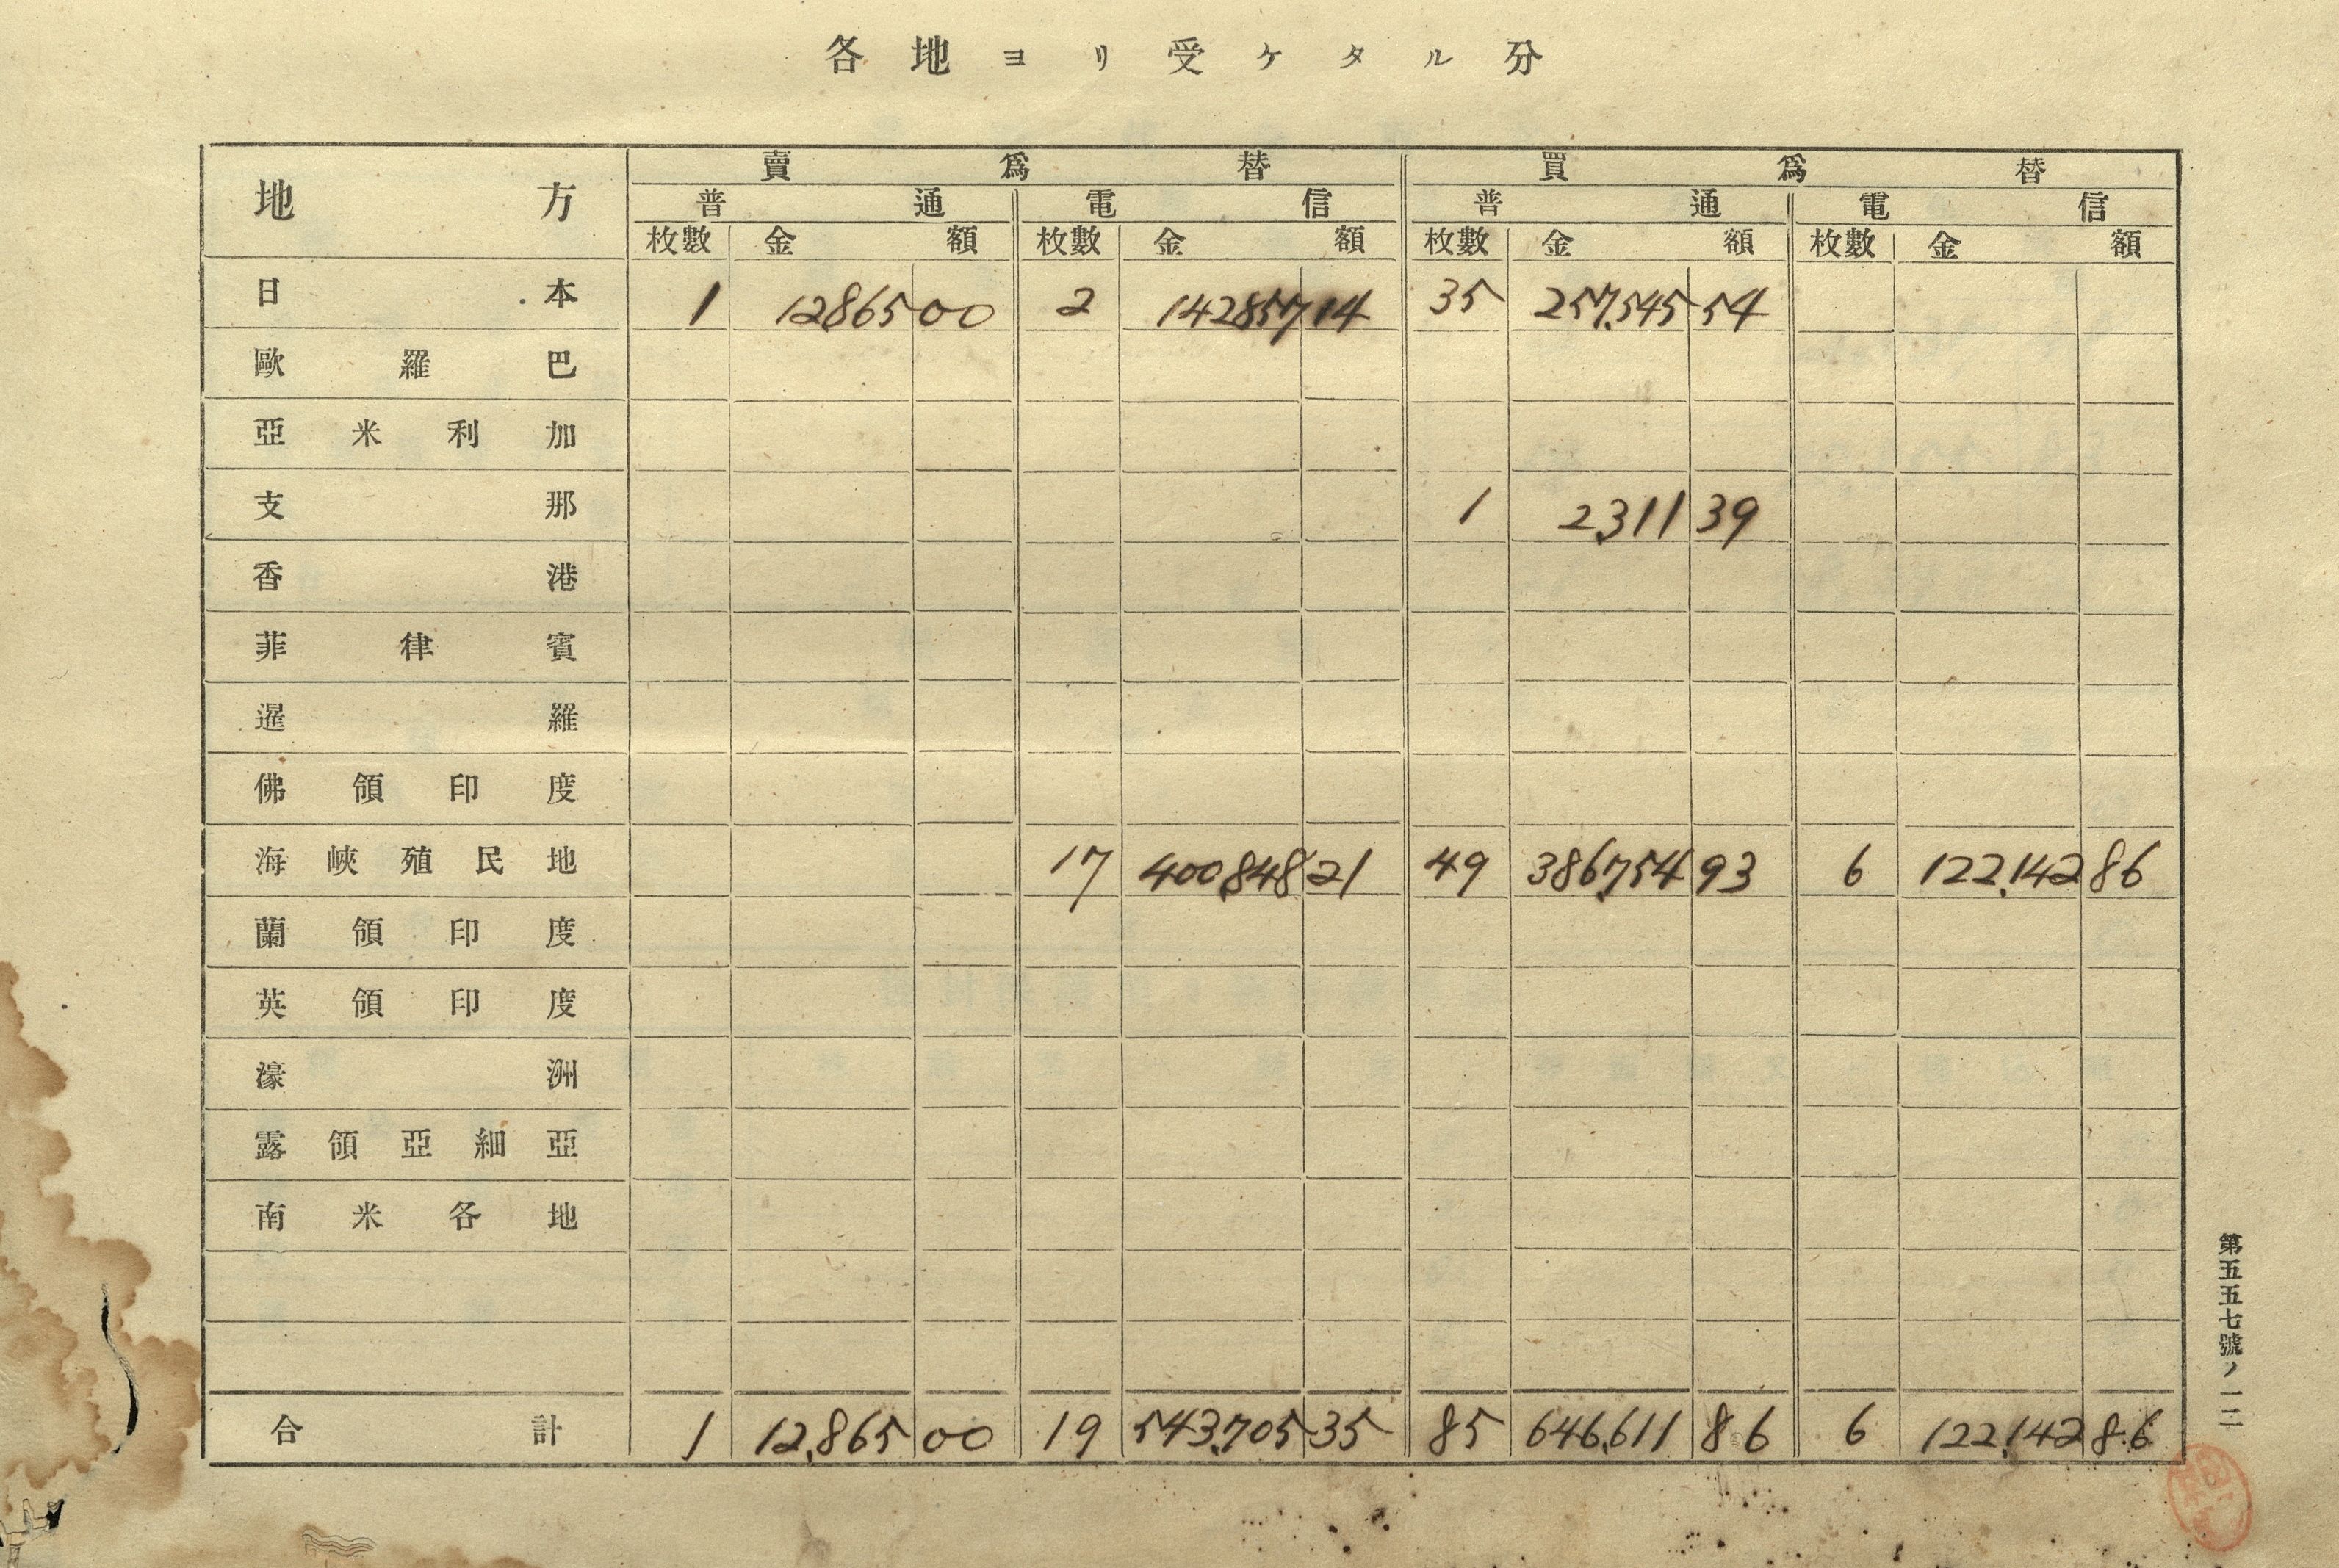 各地ヨリ受ケタル分
地方 賣爲替 買爲替
普通 電信 普通 電信
枚數 金額 枚數 金額 枚數 金額 枚數 金額
日本 1 12865 00 2 142857 14 35 257,545 54
歐羅巴
亞米利加
支那 1 2,311 39
香港
菲律賓
暹羅
佛領印度
海峽殖民地 17 400,848 21 49 386,754 93 6 122,142 86
蘭領印度
英領印度
濠洲
露領亞細亞
南米各地
合計 1 12,865 00 19 543,705 35 85 646,611 86 6 122,142 86
第五五七號ノ一二